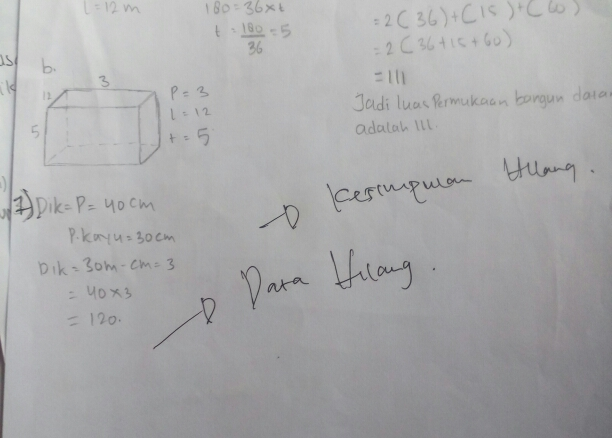 l = 12 m
180 = 36 x t
t = 180/36 = 5
= 2 ( 36 ) + ( 15 ) + ( 60 )
= 2 ( 36 + 15 + 60 )
= 111
Jadi luas Permukaan bangun
adalah 111.
b.
3
12
5
P = 3
l = 12
t = 5
7) Dik = P = 40 cm
P. kayu = 30 cm
Dik = 30 m - cm = 3
= 40 x 3
= 120.
Kesimpulan Hilang.
Data Hilang.